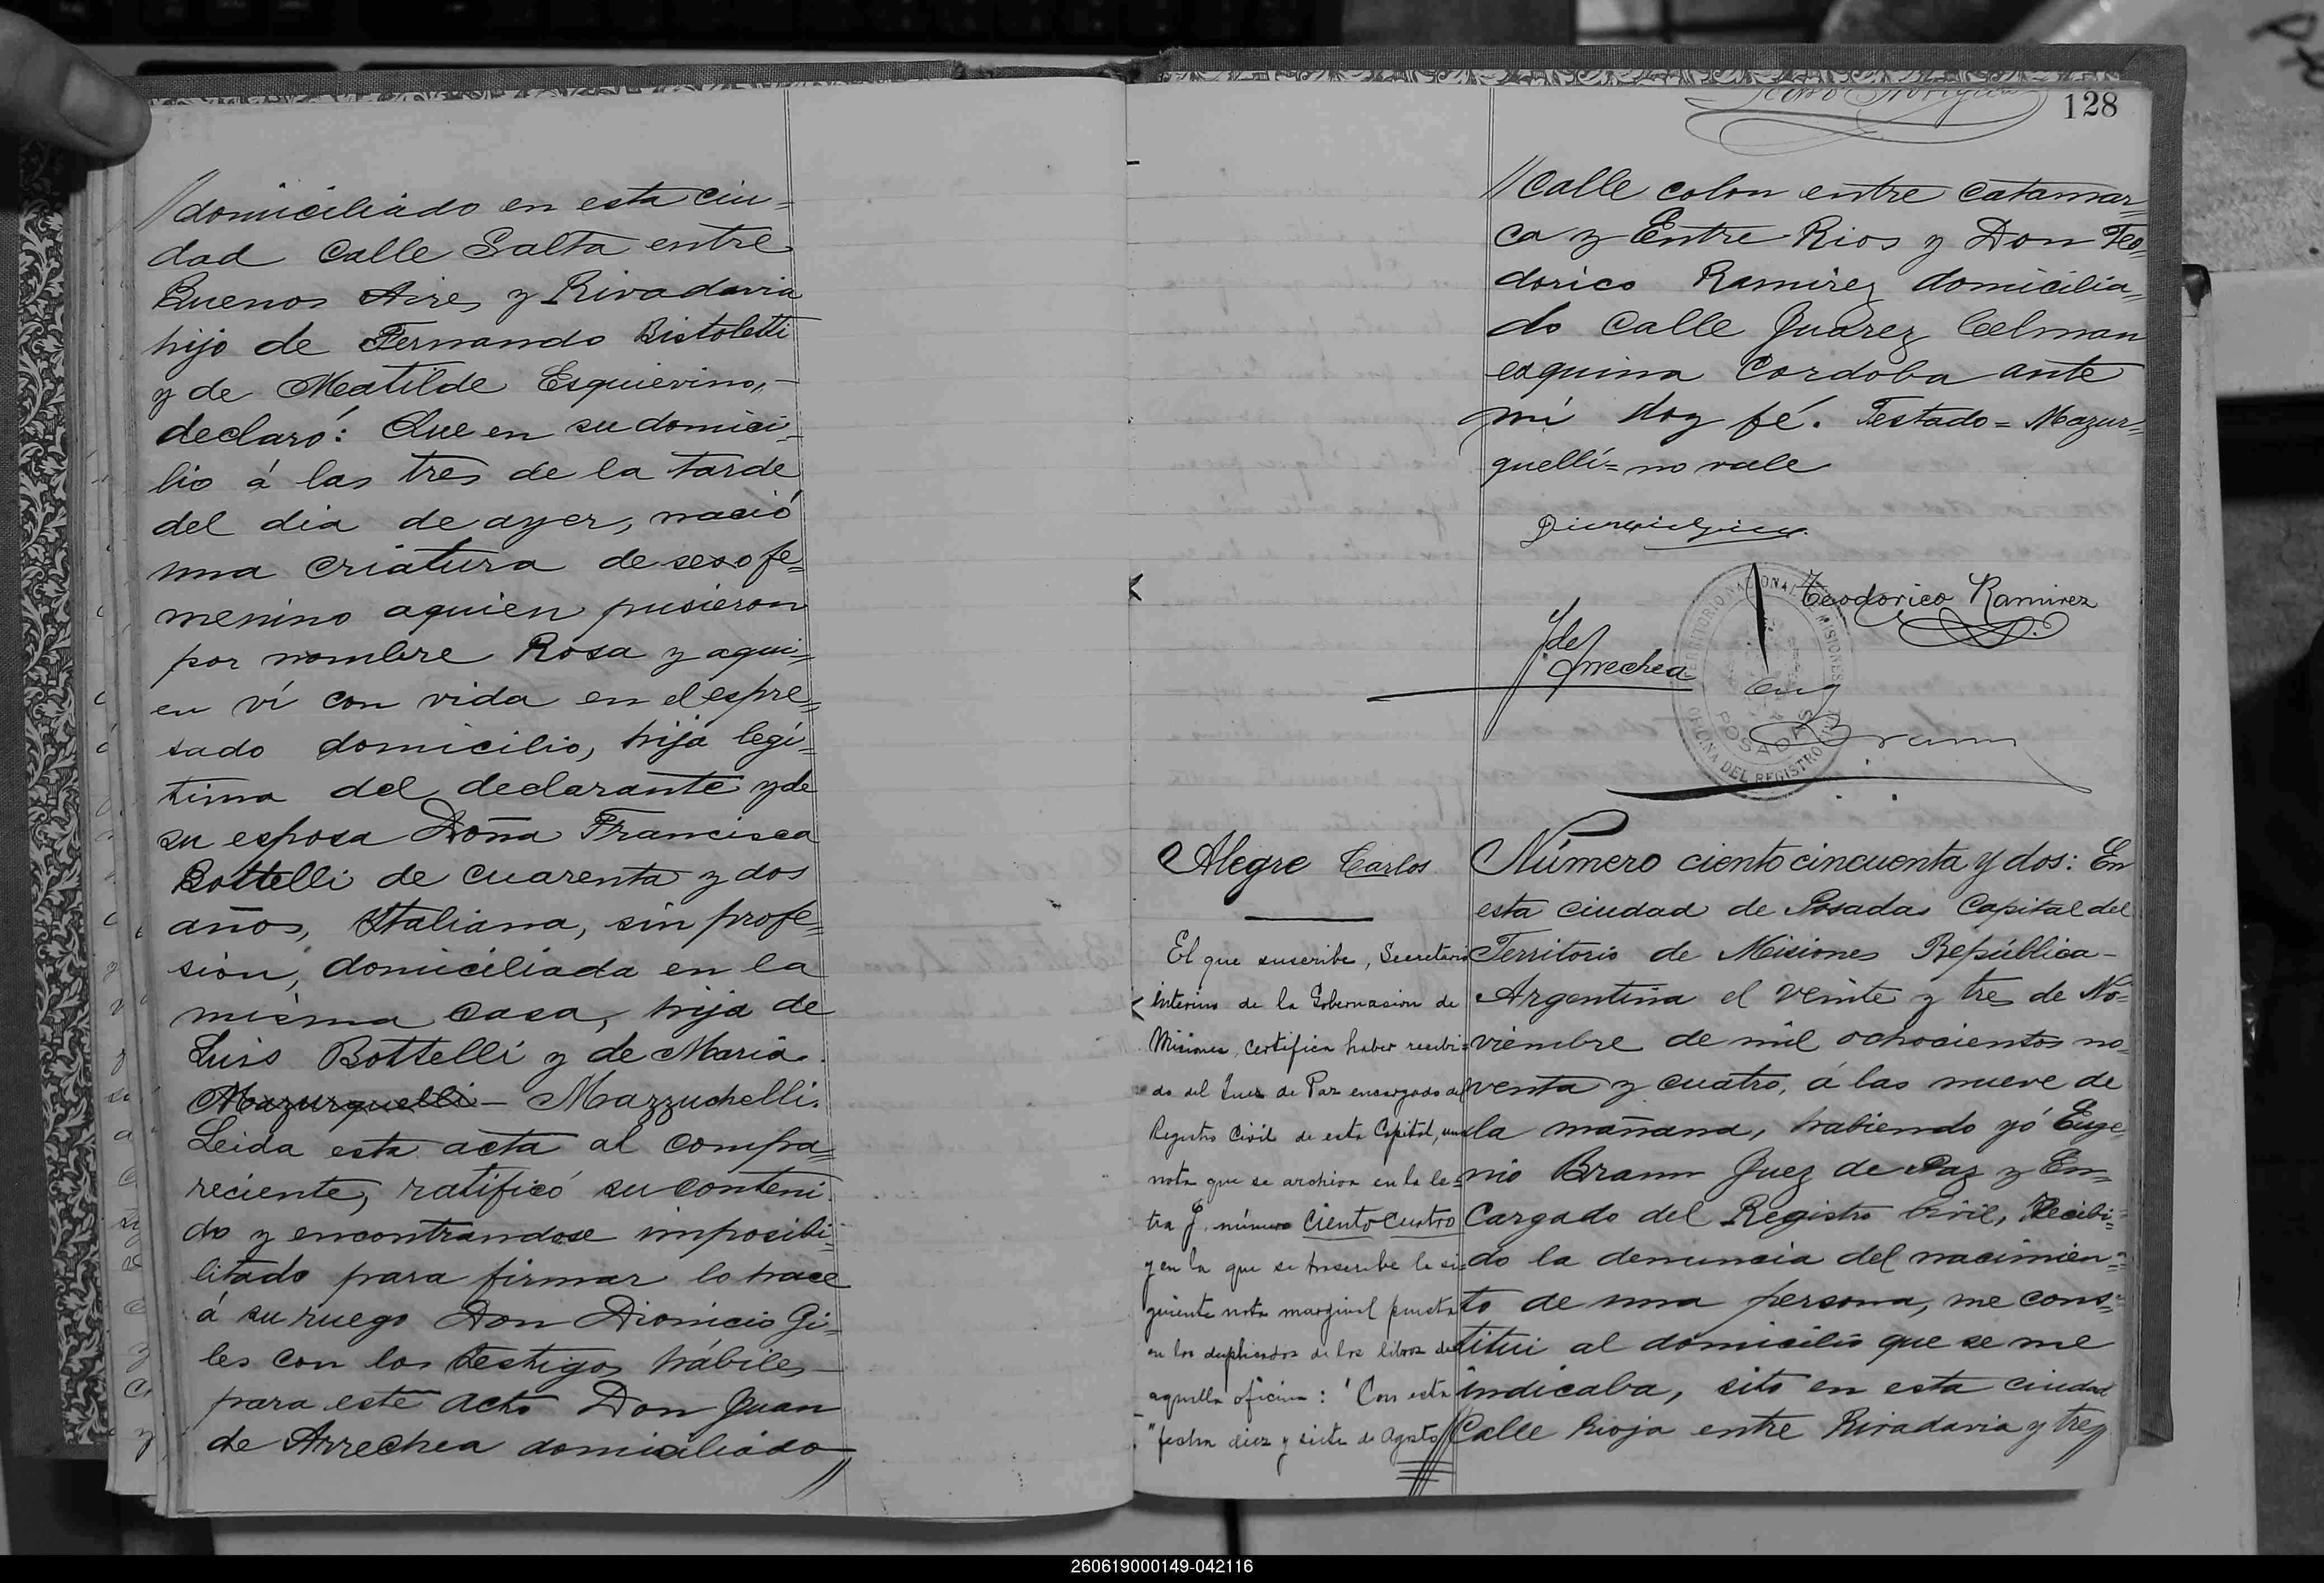 //domiciliado en esta ciu-
dad calle Salta entre
Buenos Aires y Rivadavia
hijo de Fernando Bistoletti
y de Matilde Esquierino,-
declaró: Que en su domici-
lio á las tres de la tarde
del dia de ayer, nació
una criatura de sexo fe=
menino aquien pusieron
por nombre Rosa y aqui=
en ví con vida en el espre=
sado domicilio, hija legi=
tima del declarante y de
su esposa Doña Francisca
Bottelli de cuarenta y dos
años, Italiana, sin profe=
sion, domiciliada en la
misma casa, hija de
Luis Bottelli y de Maria
Mazurquelli - Mazzuchelli.
Leida esta acta al compa=
reciente, ratificó su conteni-
do y encontrandose imposibi=
litado para firmar lo hace
á su ruego Don Dionicio Gi=
les con los testigos hábiles
para este acto Don Juan
de Arrechea domiciliado
//
128
//Calle colon entre catamar=
ca y Entre Rios y Don Teo=
dorico Ramirez domicilia=
do Calle Juarez Celman
esquina Cordoba ante
mi doy fé. Testado = Mazur=
quelli = no vale
Teodorico Ramirez
J. de Arrechea
Eug Braun
TERRITORIO NACIONAL MISIONES
POSADAS
OFICINA DEL REGISTRO CIVIL
Alegre Carlos
El que suscribe, Secretario
interino de la Gobernacion de
Misiones, certifica haber recibi=
do del Juez de Paz encargado del
Registro Civil de esta Capital, una
nota que se archiva en la le=
tra J. número ciento cuatro
y en la que se trascribe la si=
guiente nota marginal puesta
en los duplicados de los libros de
aquella oficina: "Con esta
"fecha diez y siete de Agosto//
Número ciento cincuenta y dos: En
esta ciudad de Posadas Capital del
Territorio de Misiones República-
Argentina el veinte y tres de No=
viembre de mil ochocientos no=
venta y cuatro, á las nueve de
la mañana, habiendo yó Euge=
nio Braun Juez de Paz y En=
cargado del Registro Civil, Recibi=
do la denuncia del nacimien=
to de una persona, me cons=
titui al domicilio que se me
indicaba, sito en esta ciudad
Calle Rioja entre Rivadavia y tres
260619000149-042116